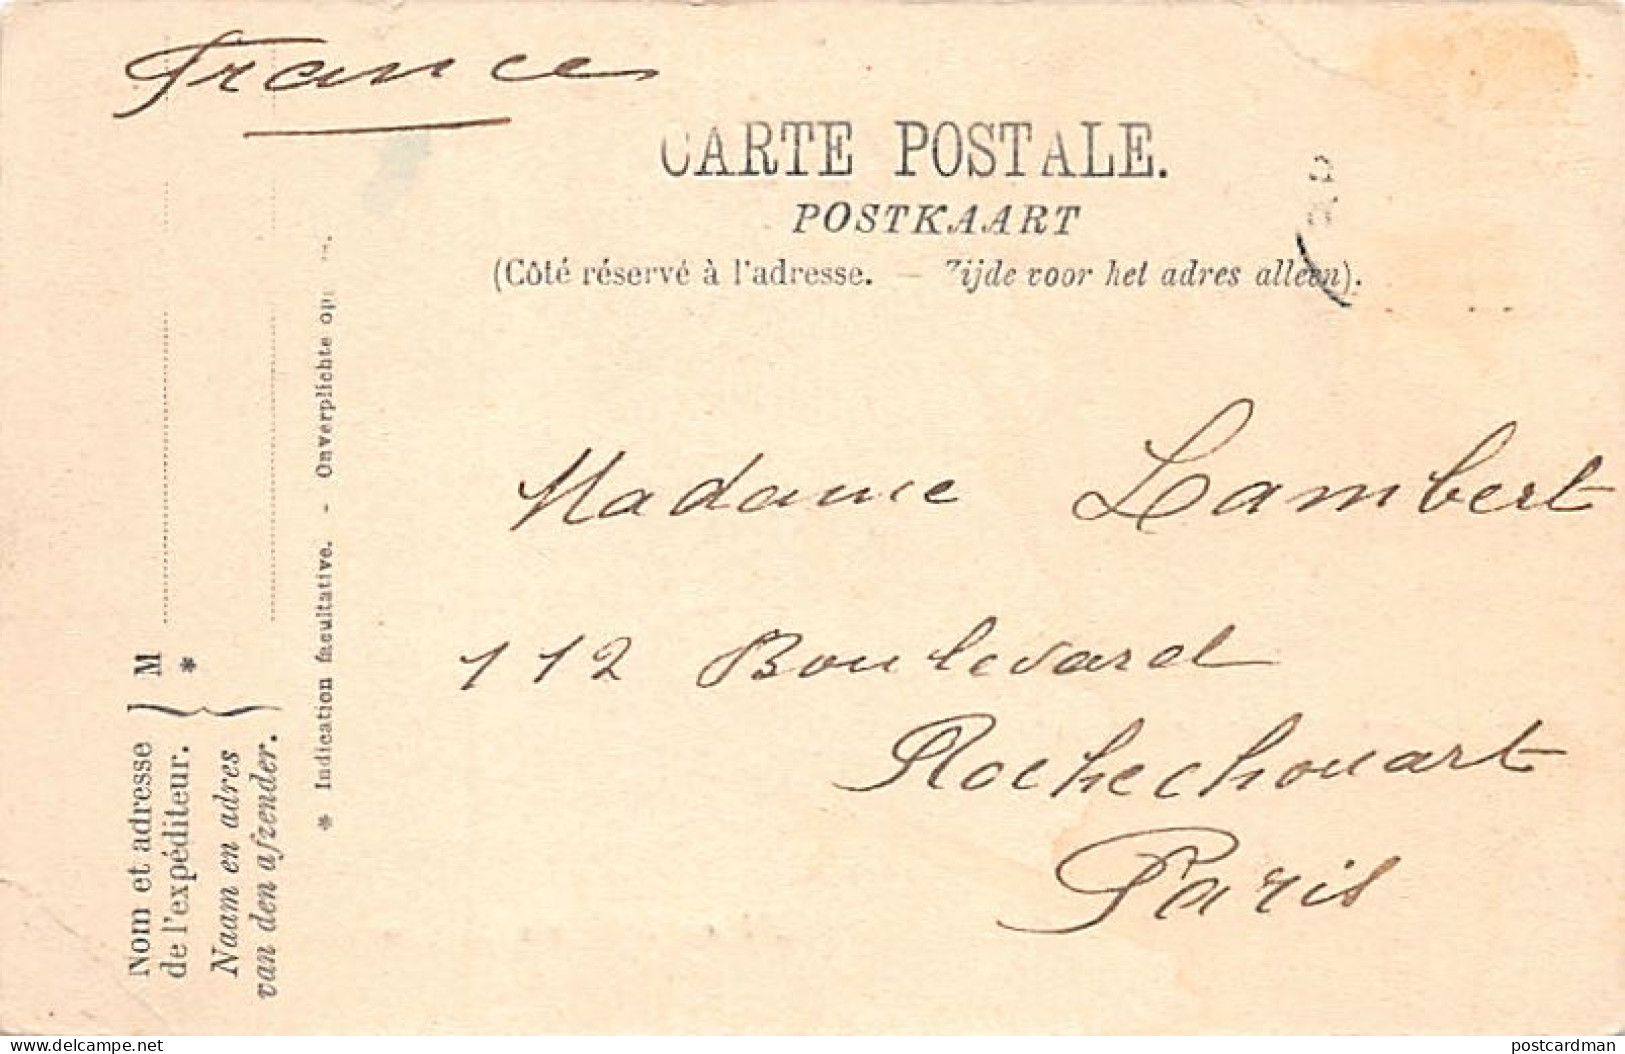 France
CARTE POSTALE.
POSTKAART
(Côté réservé à l'adresse. — Zijde voor het adres alleen).
Madame Lambert
112 Boulevard
Rochechouart
Paris
Nom et adresse
de l'expéditeur.
M
*
Naam en adres
van den afzender.
* Indication facultative. - Onverplichte
www.delcampe.net
postcardman